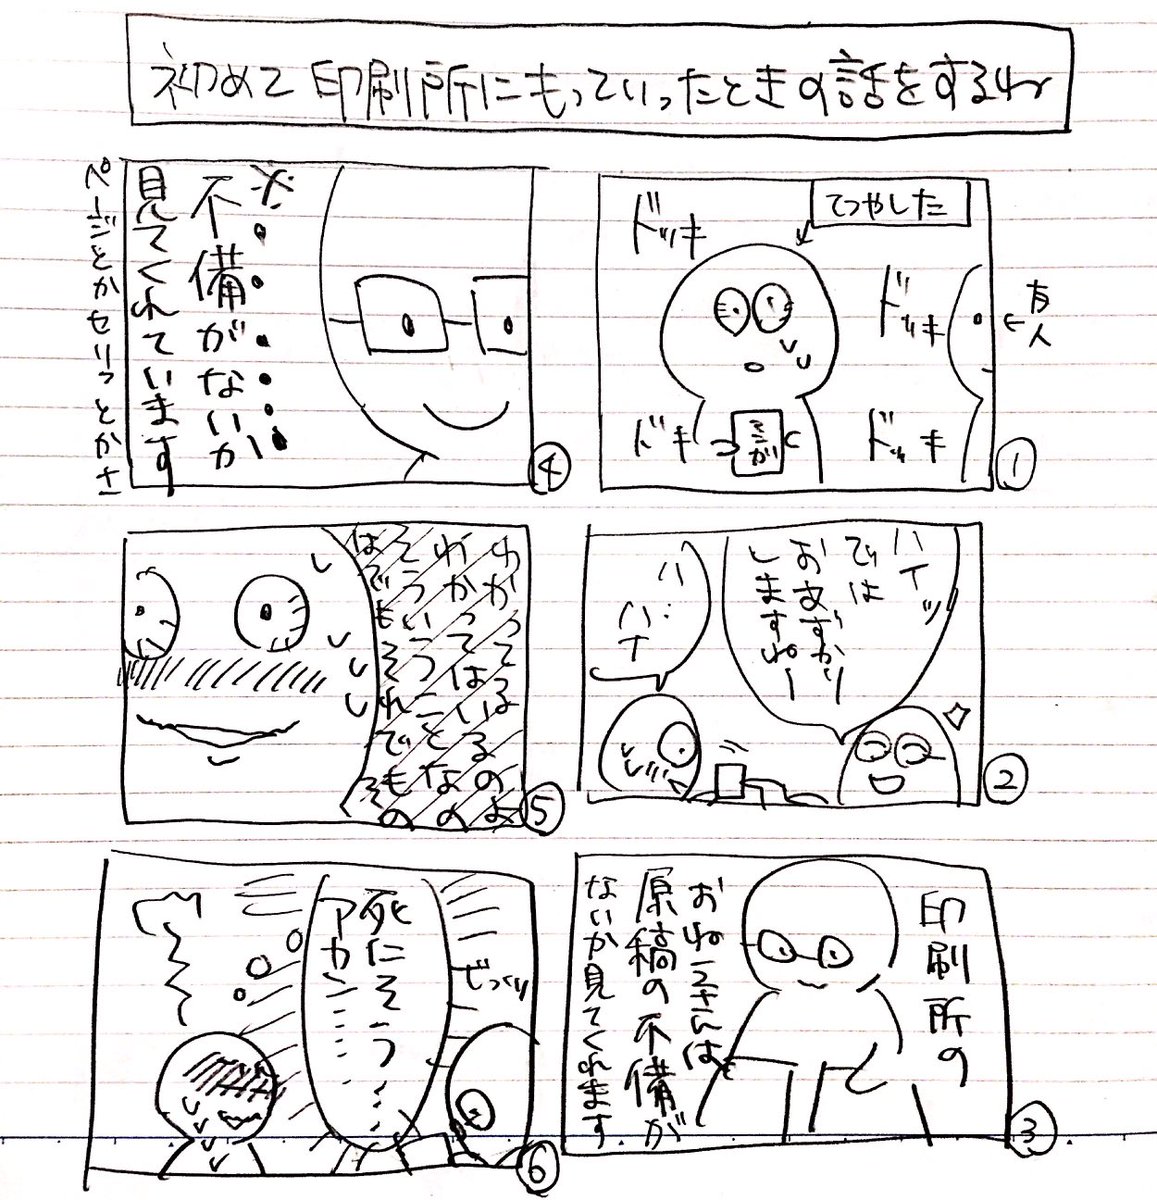 初めて印刷所にもっていったときの話をするね
てつやした
ドッキ
ドッキ
友人
ドキ
まンガ
ドッキ
①
ハイッ
では
おあずかり
しますねー
ハ
ハイ
②
印刷所の
おねーさんは
原稿の不備が
ないか見てくれます
③
※
不備がないか
見てくれています
ページとかセリフとかさ
④
わかってはいるのよ
わかってはいるの
そういうことなの
はでもそれでもその
⑤
じっくり
死にそう……
アカン……
⑥